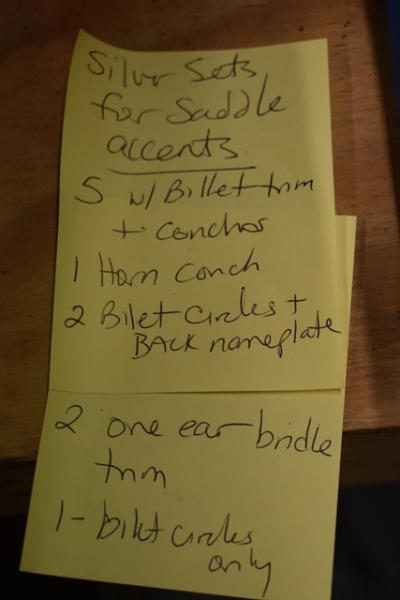 Silver Sets
for Saddle
accents
5 w/Billet trim
+ conchos
1 Horn Conch
2 Bilet Circles +
BACK nameplate
2 one ear bridle
trim
1- bilet circles
only